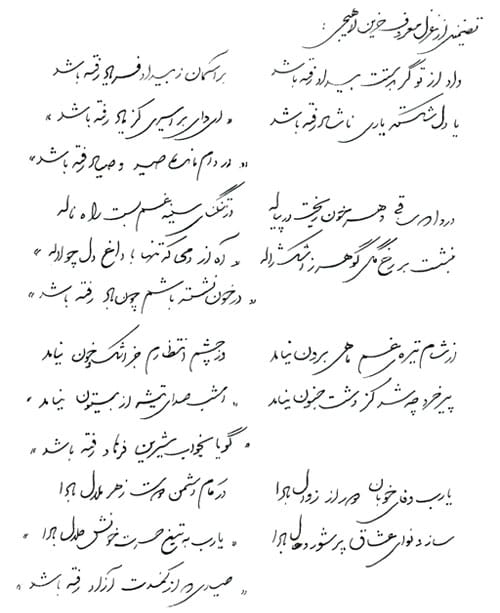 تضمینی از غزل معروف حزین لاهیجی :
داد از تو گر بیداد رفته باشد    بر آسمان ز بیداد فریاد رفته باشد
یا دل شکسته یاری ناشاد رفته باشد    « ای وای بر اسیری کز یاد رفته باشد »
« در دام مانده صید و صیاد رفته باشد »
دردا که ساقی دهر خون ریخت در پیاله    در تنگنای سینه غم بست راه ناله
بنشست بر رخ گل گوهر ز اشک ژاله    « آه از دمی که تنها با داغ دل چو لاله »
« در خون نشسته باشم چون باد رفته باشد »
از شام تیره‌ی غم ماهی برون نیامد    در چشم انتظارم جز اشک و خون نیامد
پیر خرد چه شد کز دشت جنون نیامد    « امشب صدای تیشه از بیستون نیامد »
« گویا بخواب شیرین فرهاد رفته باشد »
یارب وفای خوبان دور از زوال بادا    در کام دشمن دوست زهر ملال بادا
ساز و نوای عشاق پرشور و حال بادا    « یارب به تیغ حسرت خونش حلال بادا »
« صیدی که از کمندت آزاد رفته باشد »